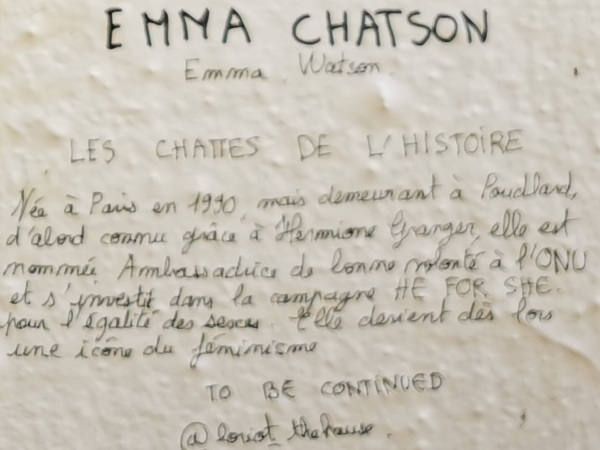 EMMA CHATSON
Emma Watson.
LES CHATTES DE L'HISTOIRE
Née à Paris en 1990, mais demeurant à Poudlard,
d'abord connue grâce à Hermione Granger, elle est
nommée Ambassadrice de bonne volonté à l'ONU
et s'investit dans la campagne HE FOR SHE.
pour l'égalité des sexes. Elle devient dès lors
une icône du féminisme
TO BE CONTINUED